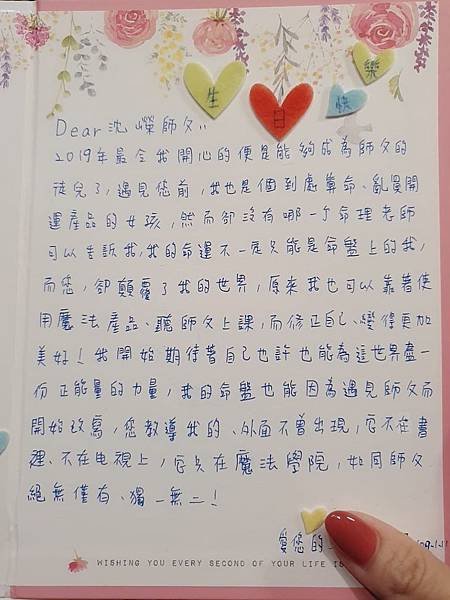 生日快樂
Dear 沈嶸師父..
2019年最令我開心的便是能夠成為師父的
徒兒了，遇見您前，我也是個到處算命、亂買開
運產品的女孩，然而卻沒有哪一個命理老師
可以告訴我，我的命運不一定只能是命盤上的我，
而您，卻顛覆了我的世界，原來我也可以靠著使
用魔法產品、聽師父上課，而修正自己、變得更加
美好！我開始期待著自己也許也能為這世界盡一
份正能量的力量，我的命盤也能因為遇見師父而
開始改寫，您教導我的、外面不曾出現，它不在書
裡、不在电視上，它只在魔法學院，如同師父
絕無僅有、獨一無二！
愛您的
WISHING YOU EVERY SECOND OF YOUR LIFE IS